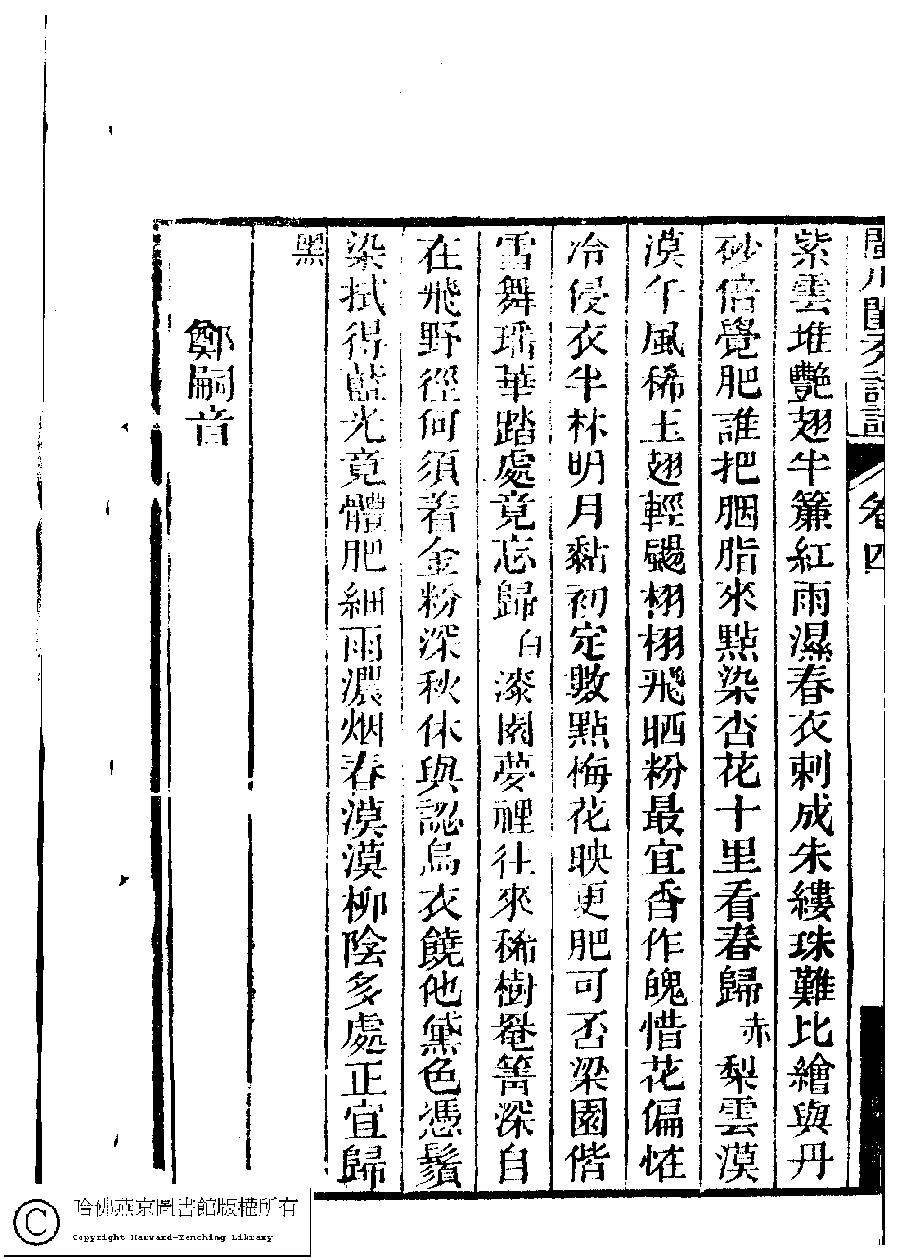 閨秀詩話 卷四
紫雲堆艷翅半簾紅雨濕春衣刺成朱縷珠難比繪與丹
砂倍覺肥誰把胭脂來點染杏花十里看春歸赤梨雲漠
漠午風稀玉翅輕颺栩栩飛晒粉最宜香作魄惜花偏怪
冷侵衣半林明月黏初定數點梅花映更肥可否梁園偕
雪舞璠華踏處竟忘歸白漆園夢裡往來稀樹罨篝深自
在飛野徑何須着金粉深秋休與認烏衣饒他黛色憑鬚
染拭得藍光竟體肥細雨濃烟春漠漠柳陰多處正宜歸
黑
鄭嗣音
哈佛燕京圖書館版權所有
Copyright Harvard-Yenching Library